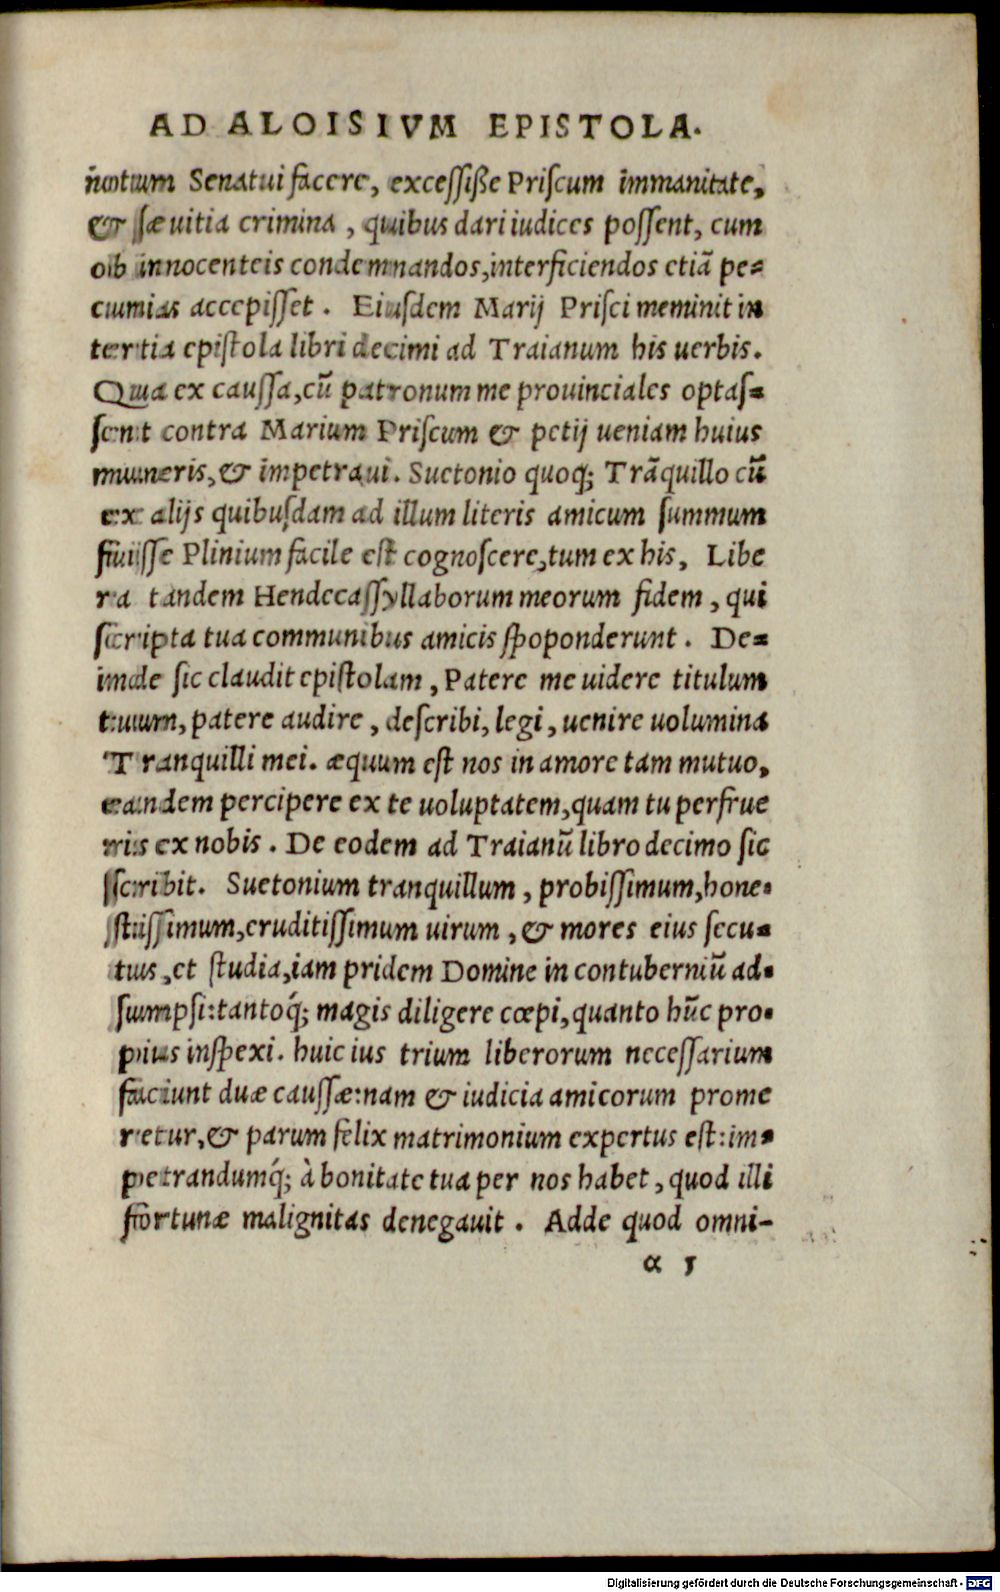 AD ALOISIVM EPISTOLA.
notum Senatui facere, excessiße Priſcum immanitate,
& ſæuitia crimina, quibus dari iudices poſſent, cum
ob innocenteis condemnandos, interficiendos etiā pe-
cunias accepiſſet. Eiuſdem Marij Priſci meminit in
tertia epiſtola libri decimi ad Traianum his uerbis.
Qua ex cauſſa, cū patronum me prouinciales optaſ-
ſent contra Marium Priſcum & petij ueniam huius
muneris, & impetraui. Suetonio quoq; Trāquillo cū
ex alijs quibuſdam ad illum literis amicum ſummum
fuiſſe Plinium facile eſt cognoſcere, tum ex his, Libe
ra tandem Hendecaſſyllaborum meorum fidem, qui
ſcripta tua communibus amicis ſpoponderunt. De-
inde ſic claudit epiſtolam, Patere me uidere titulum
tuum, patere audire, deſcribi, legi, uenire uolumina
Tranquilli mei. æquum eſt nos in amore tam mutuo,
eandem percipere ex te uoluptatem, quam tu perfrue
ris ex nobis. De eodem ad Traianū libro decimo ſic
ſcribit. Suetonium tranquillum, probiſſimum, hone-
ſtiſſimum, eruditiſſimum uirum, & mores eius ſecu-
tus, et ſtudia, iam pridem Domine in contuberniū ad-
ſumpſi: tantoq́; magis diligere cœpi, quanto hūc pro-
pius inſpexi. huic ius trium liberorum neceſſarium
faciunt duæ cauſſæ: nam & iudicia amicorum prome
retur, & parum felix matrimonium expertus eſt: im-
petrandumq́; à bonitate tua per nos habet, quod illi
fortunæ malignitas denegauit. Adde quod omni-
α 5
Digitalisierung gefördert durch die Deutsche Forschungsgemeinschaft - DFG